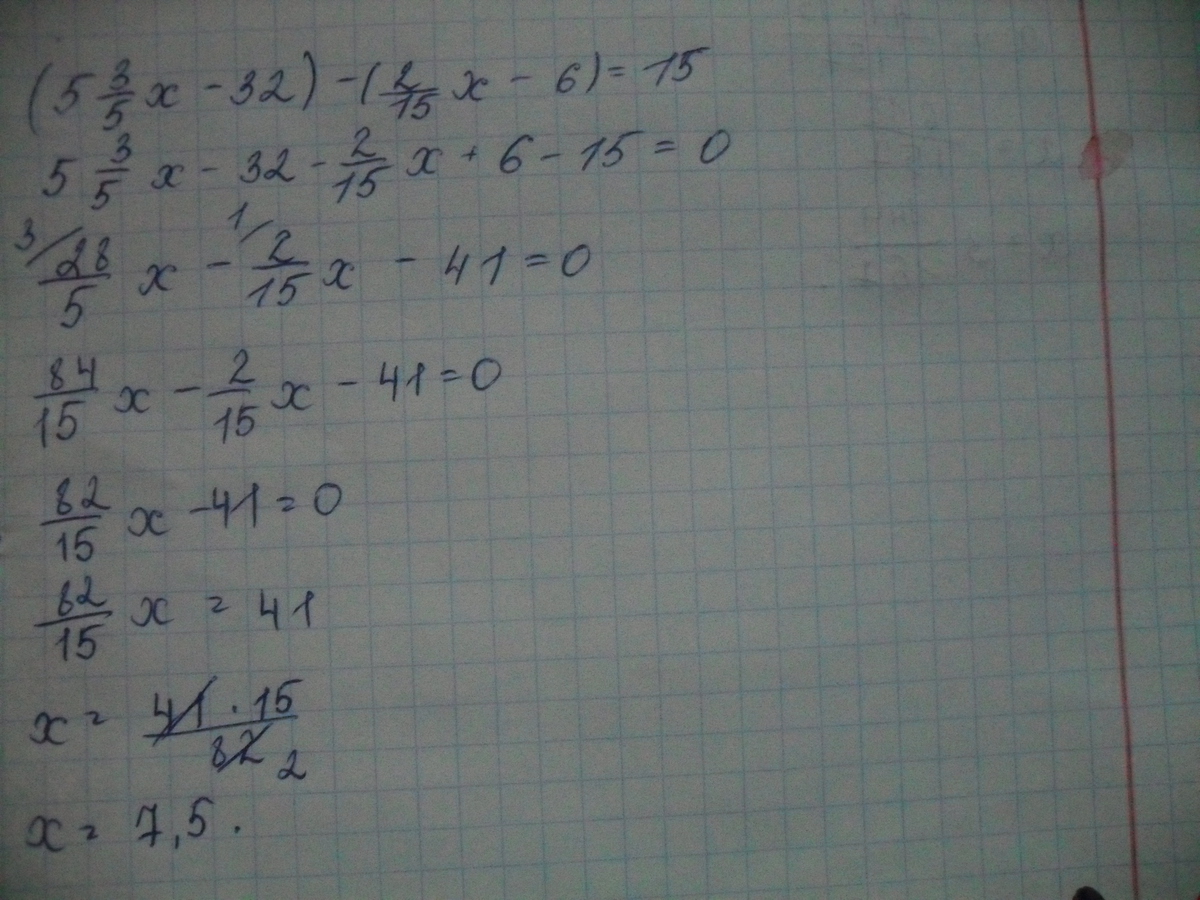 (5 3/5 x - 32) - (2/15 x - 6) = 15
5 3/5 x - 32 - 2/15 x + 6 - 15 = 0
3/ 28/5 x - 1/ 2/15 x - 41 = 0
84/15 x - 2/15 x - 41 = 0
82/15 x - 41 = 0
82/15 x = 41
x = 41 · 15 / 82 2
x = 7,5 .